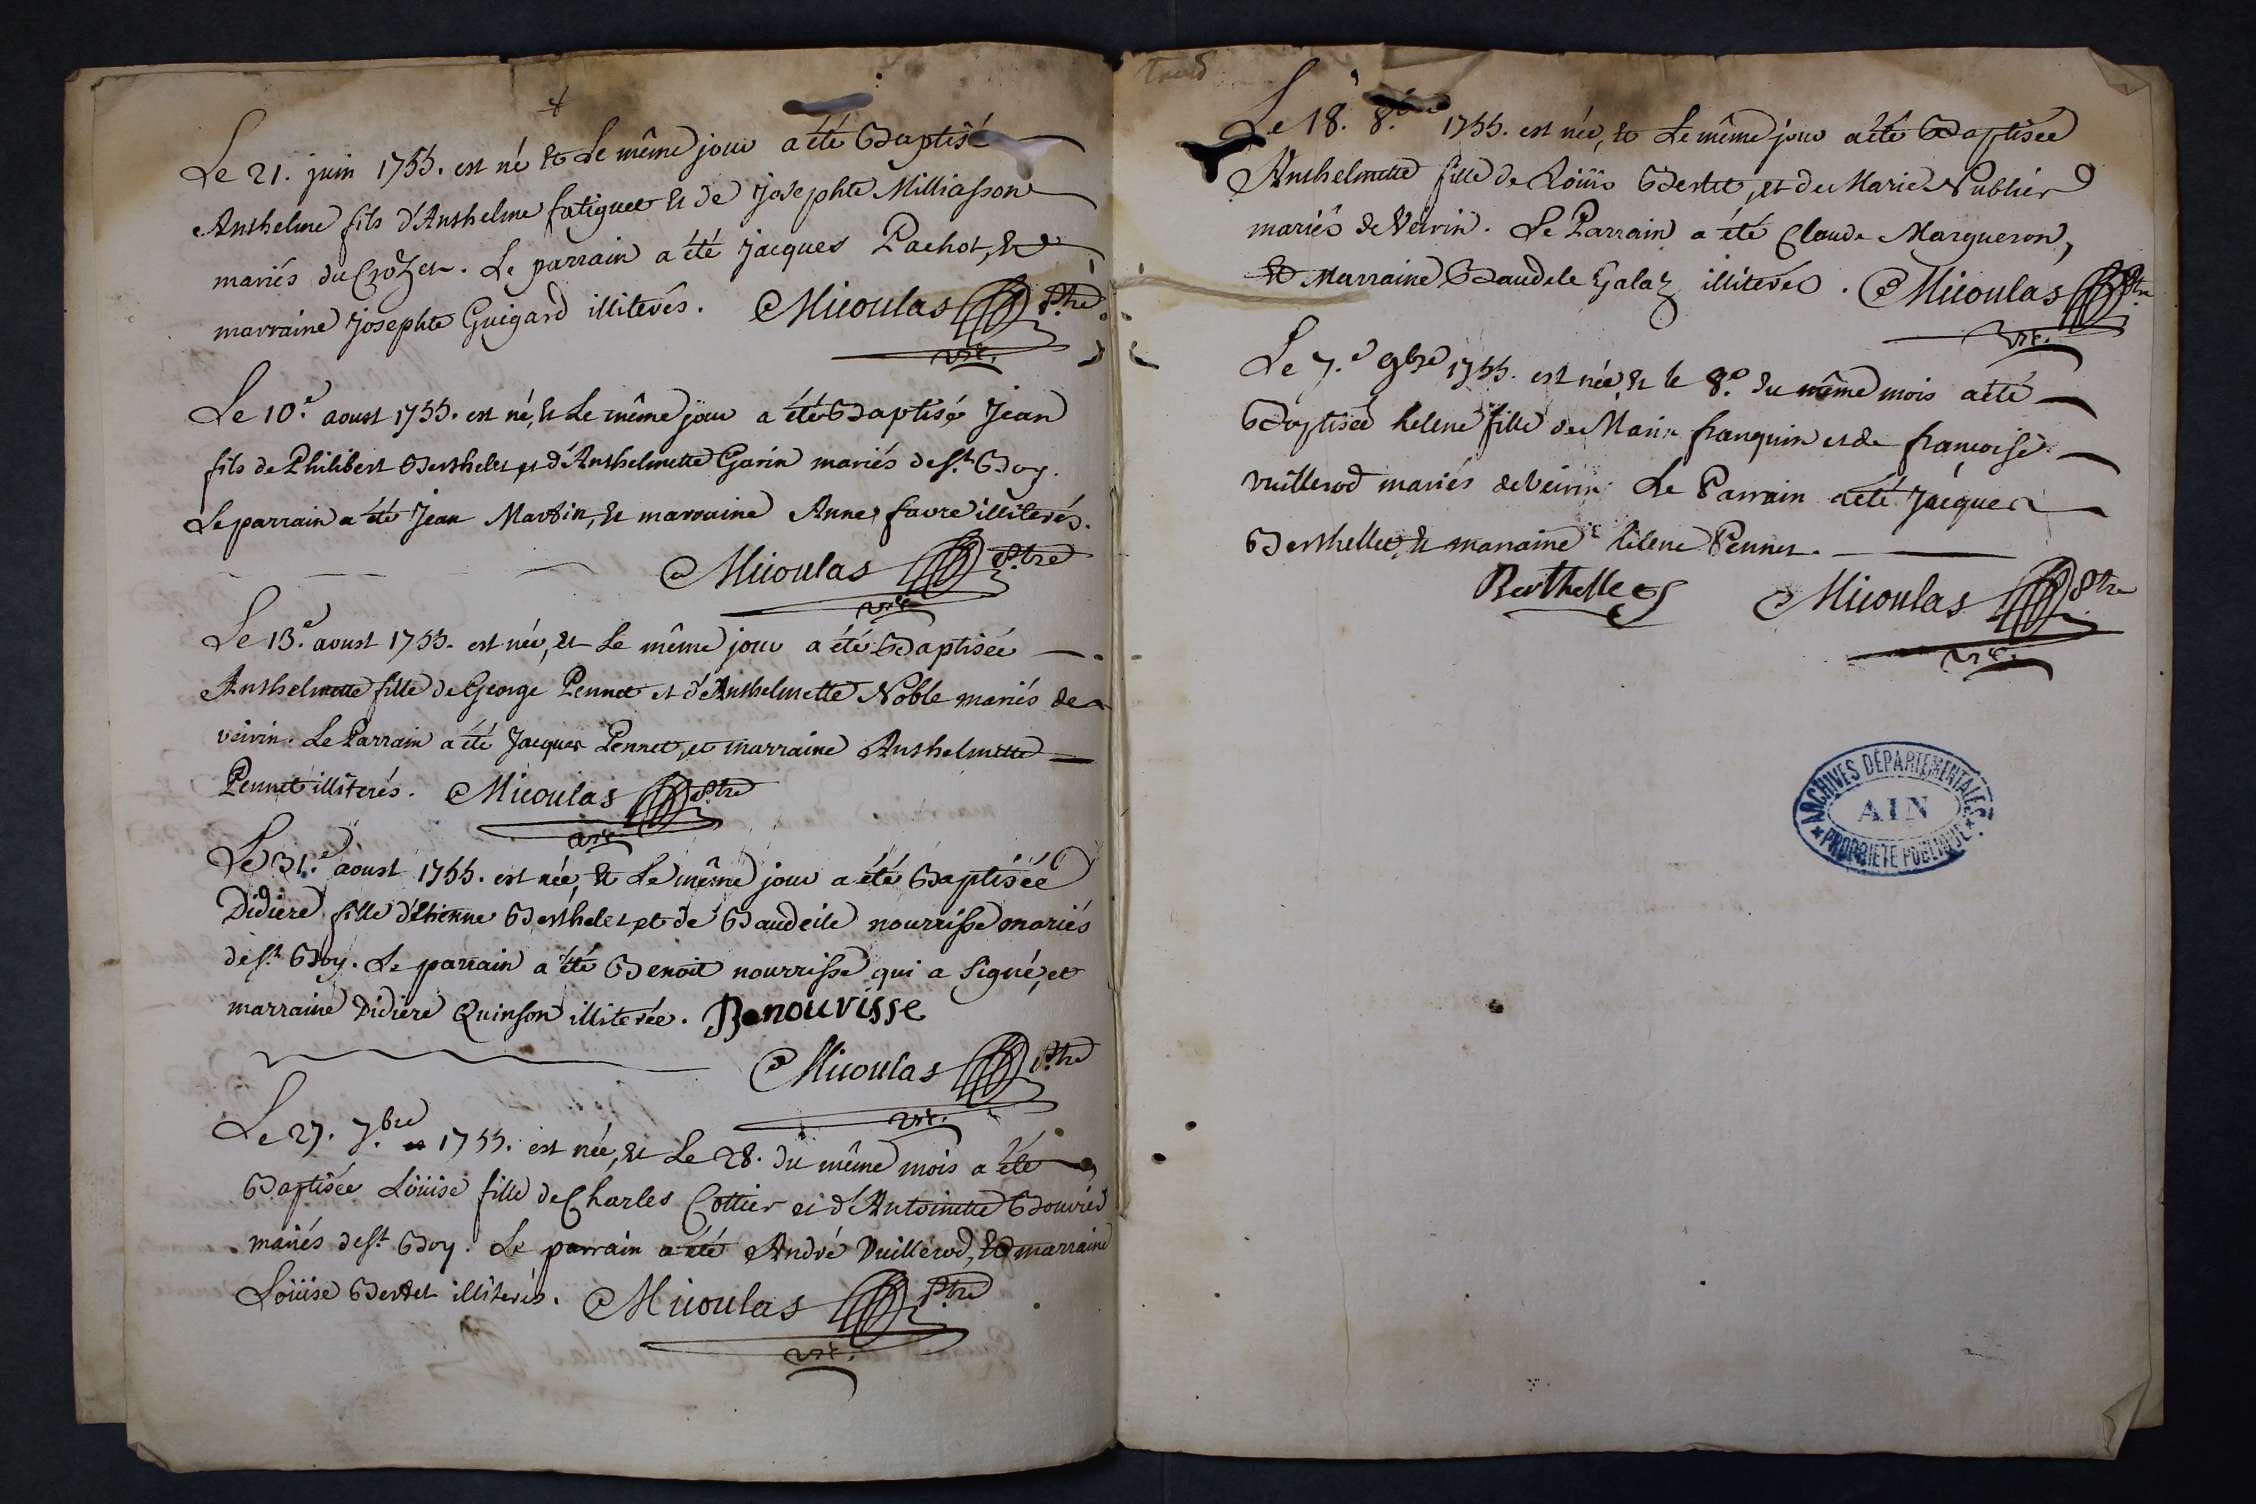 Le 21. juin 1755. est né & Le même jour a été Baptisé
Anthelme fils d'Anthelme fatiguet & de Josephte Milliasson
mariés du Crozet. Le parrain a été Jacques Pachot, &
marraine Josephte Guigard illiterés. Micoulas Ptre
vic.
Le 10.e aoust 1755. est né, & Le même jour a été Baptisé Jean
fils de Philibert Berthelet et d'Anthelmette Garin mariés de St Boy.
Le parrain a été Jean Martin, & marraine Anne favre illiterés.
Micoulas Ptre
vic.
Le 13.e aoust 1755. est née, et Le même jour a été Baptisée
Anthelmette fille de George Pennet et d'Anthelmette Noble mariés de
veirin. Le Parrain a été Jacques Pennet, et marraine Anthelmette
Pennet illiterés. Micoulas Ptre
vic.
Le 31.e aoust 1755. est née, & Le même jour a été Baptisée
Didiere fille d'Etienne Berthelet et de Baudeile nourrisse mariés
de St Boy. Le parrain a été Benoit nourrisse qui a signé, et
marraine Didiere Quinson illiterée. B nourisse
Micoulas Ptre
vic.
Le 27. 7.bre 1755. est née, & Le 28. du même mois a été
Baptisée Loüise fille de Charles Cottier et d'Antoinette Bouvier
mariés de St Boy. Le parrain a été André Vuillerod, & marraine
Loüise Bertet illiterés. Micoulas Ptre
vic.
Le 18. 8. 1755. est née, & Le même jour a été Baptisée
Anthelmette fille de Loüis Bertet, et de Marie Publier
mariés de Veirin. Le Parrain a été Claude Margueron,
& Marraine Baudele Galaz illiterés. Micoulas Ptre
vic.
Le 7.e 9bre 1755. est née, & le 8.e du même mois a été
Baptisée helene fille de Marin franquin et de françoise
vuillerod mariés de Veirin. Le Parrain a été Jacques
Berthellet, & marraine helene Pennet.
Berthellet Micoulas Ptre
vic.
ARCHIVES DÉPARTEMENTALES
AIN
PROPRIÉTÉ PUBLIQUE